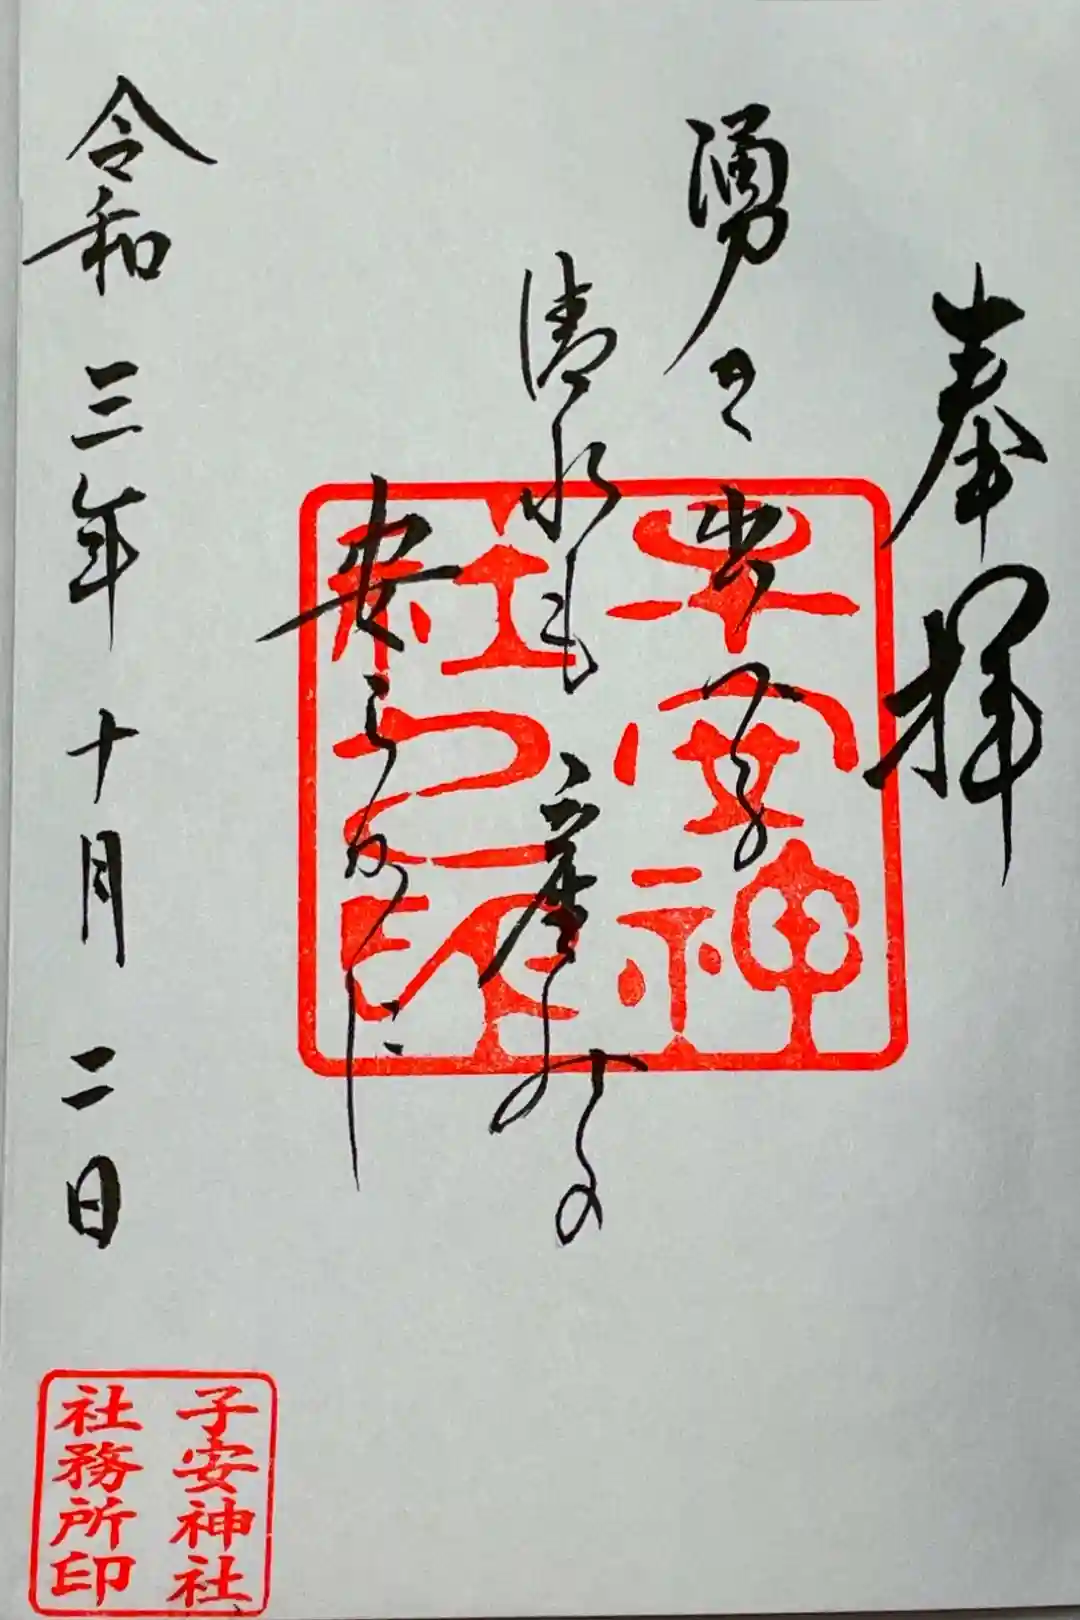 奉拝
湧き出づる
清水も 産
安らかに
令和三年十月二日
子安神
社之印
子安神社
社務所印